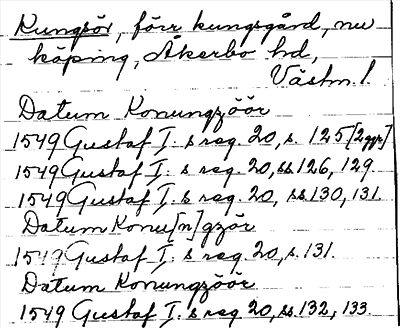 Kungsör, förr kungsgård, nu
köping, Åkerbo hd,
Västm. l.
Datum Konungzöör
1549 Gustaf I. s reg. 20, s. 125 [2 ggr]
1549 Gustaf I. s reg. 20, ss. 126, 129.
1549 Gustaf I. s reg. 20, ss. 130, 131.
Datum Konu[n]gzör
1549 Gustaf I. s reg. 20, s. 131.
Datum Konungzöör
1549 Gustaf I. s reg. 20, ss. 132, 133.